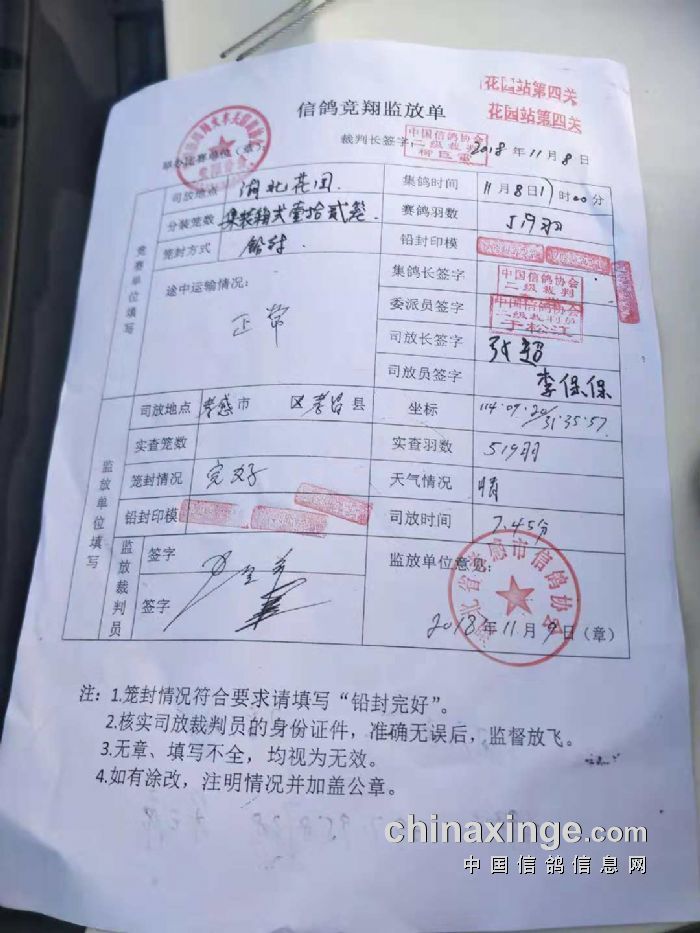 花园站第四关
花园站第四关
信鸽竞翔监放单
举办比赛单位(章):
裁判长签字:
中国信鸽协会
二级裁判
2018年11月8日
竞赛单位填写
司放地点 湖北花园 集鸽时间 11月8日17时00分
分装笼数 集装箱式壹拾贰笼 赛鸽羽数 519羽
笼封方式 铅封 铅封印模
途中运输情况: 正常
集鸽长签字 中国信鸽协会
二级裁判
委派员签字 中国信鸽协会
二级裁判员
于松江
司放长签字 张超
司放员签字 李保保
监放单位填写
司放地点 孝感市 区孝昌县 坐标 114·09·20/31·35·57
实查笼数 实查羽数 519羽
笼封情况 完好 天气情况 晴
铅封印模 司放时间 7.45分
监放裁判员
签字
签字
监放单位意见:
湖北省孝感市信鸽协会
2018年11月9日(章)
注:1.笼封情况符合要求请填写“铅封完好”。
2.核实司放裁判员的身份证件,准确无误后,监督放飞。
3.无章、填写不全,均视为无效。
4.如有涂改,注明情况并加盖公章。
chinaxinge.com
中国信鸽信息网